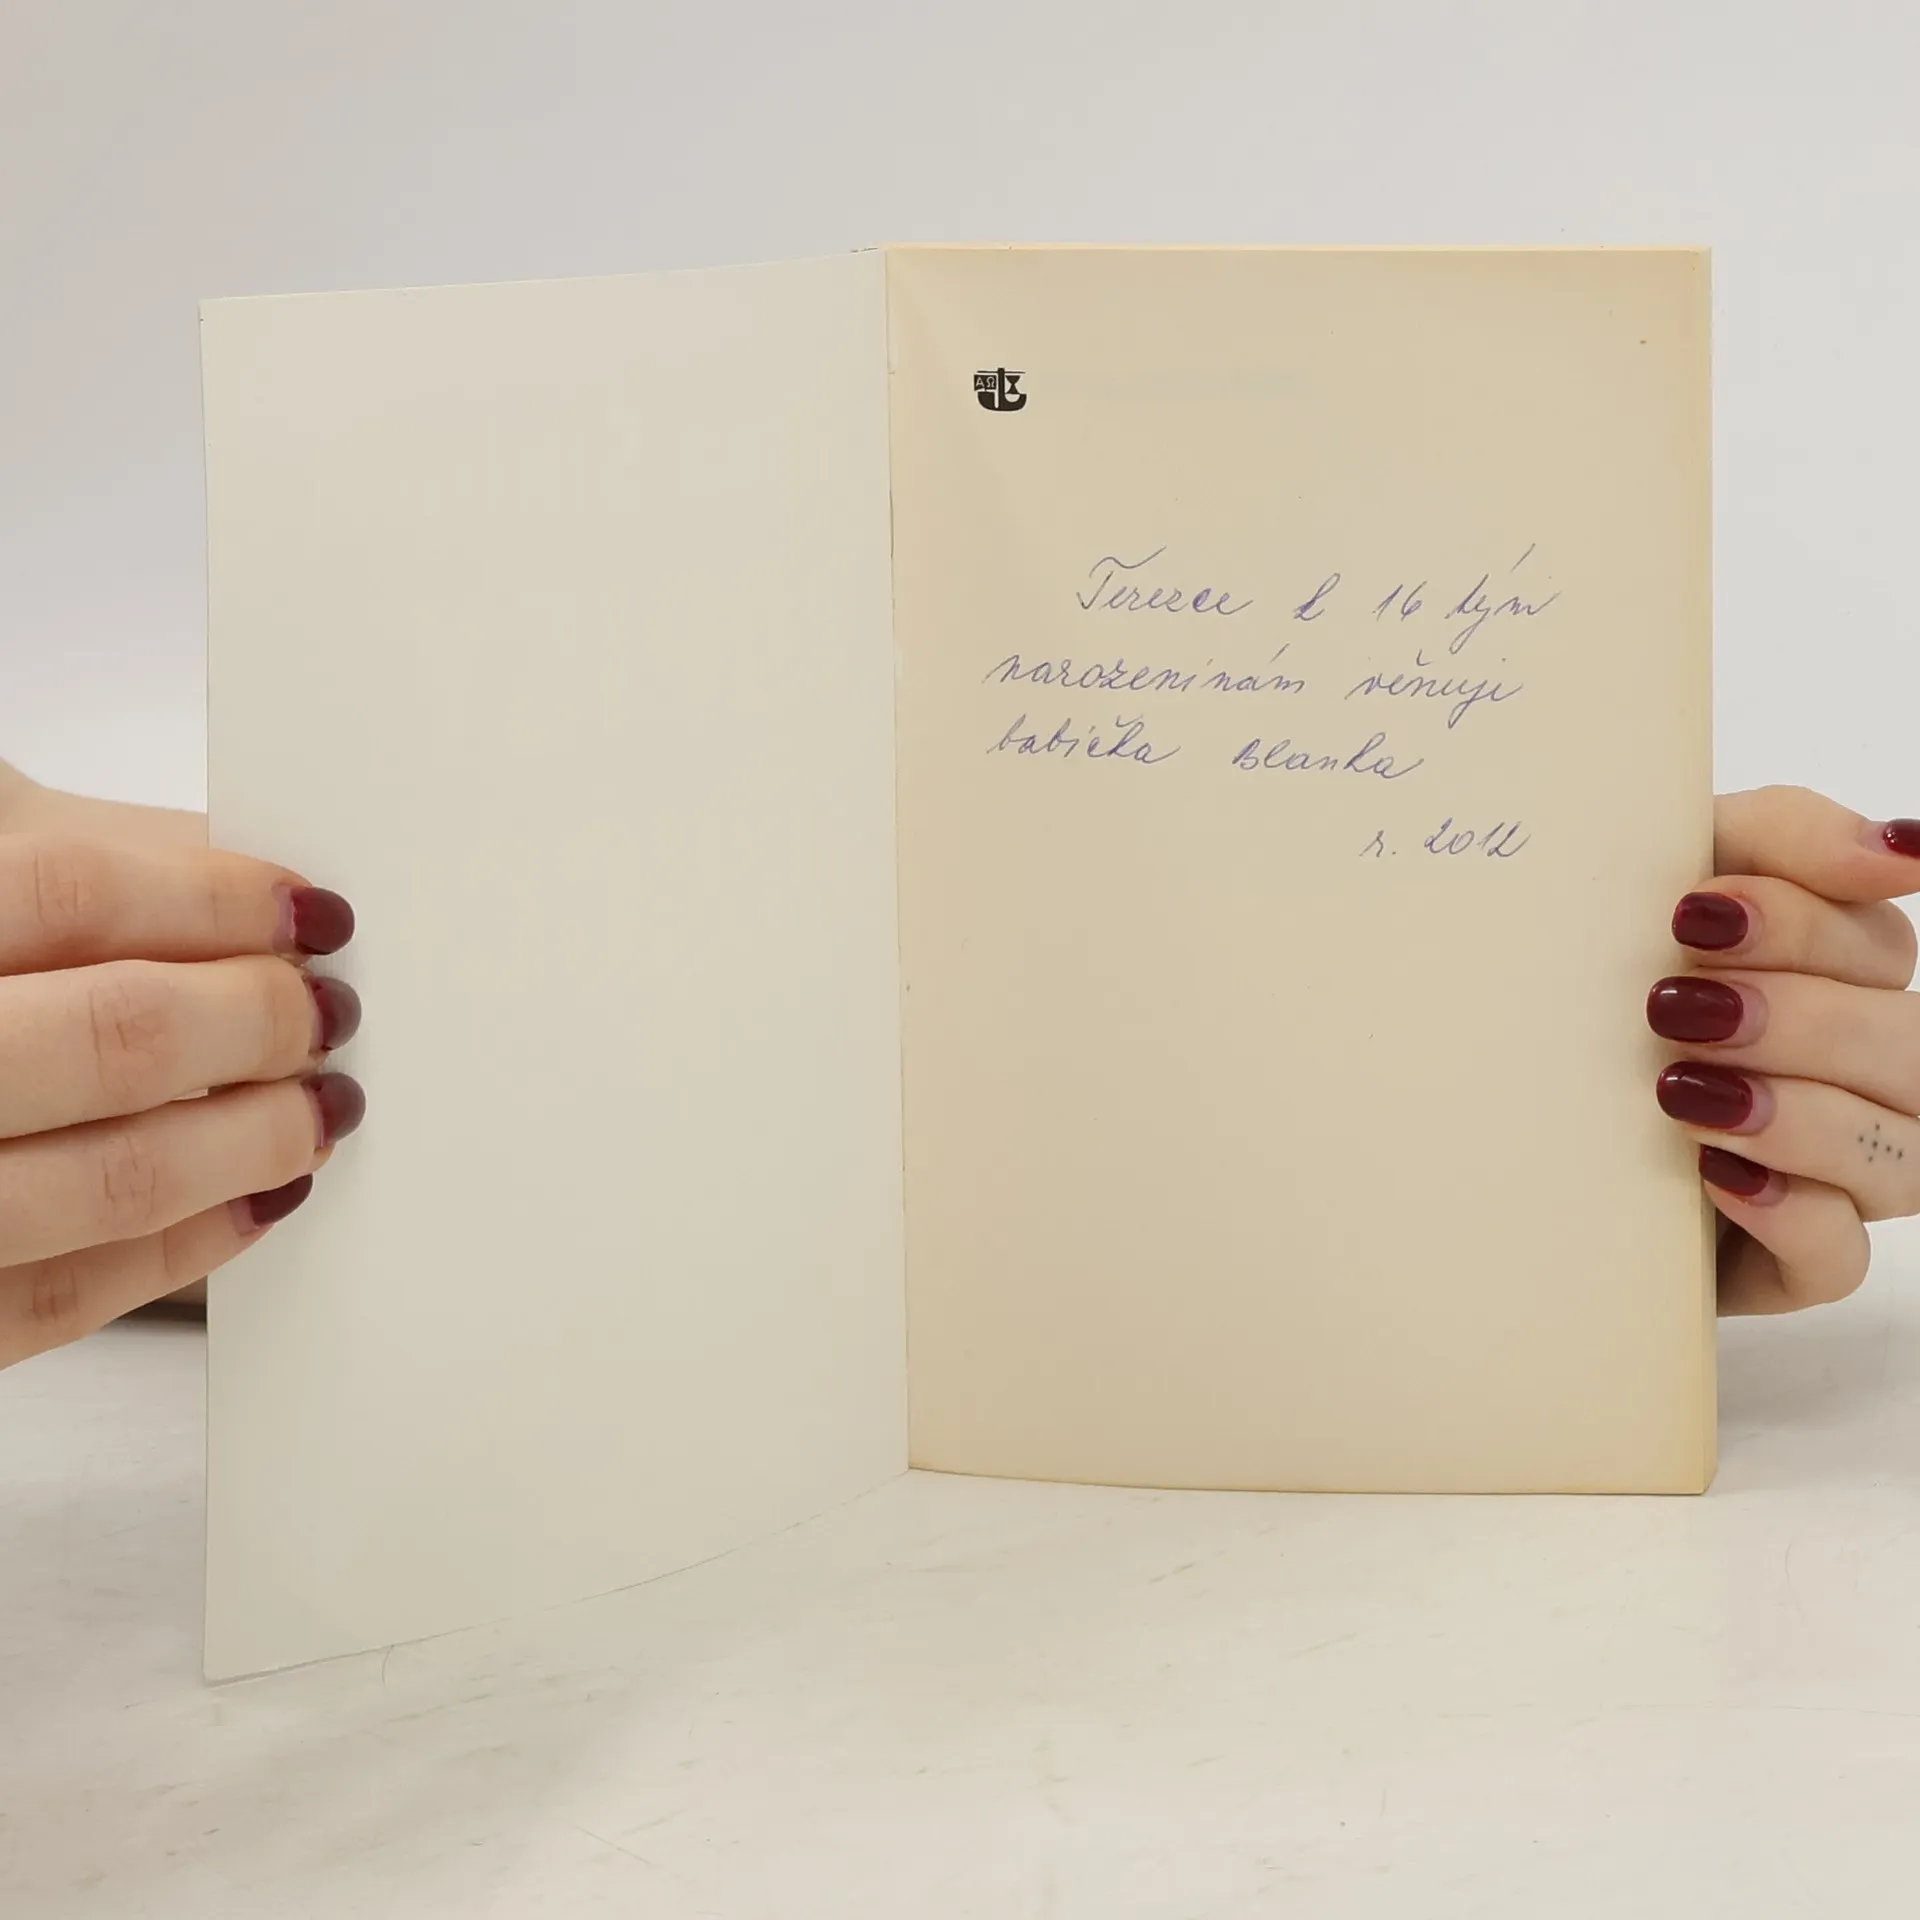 ΑΩ
Terezce k 16 tým
narozeninám věnuje
babička Blanka
r. 2012